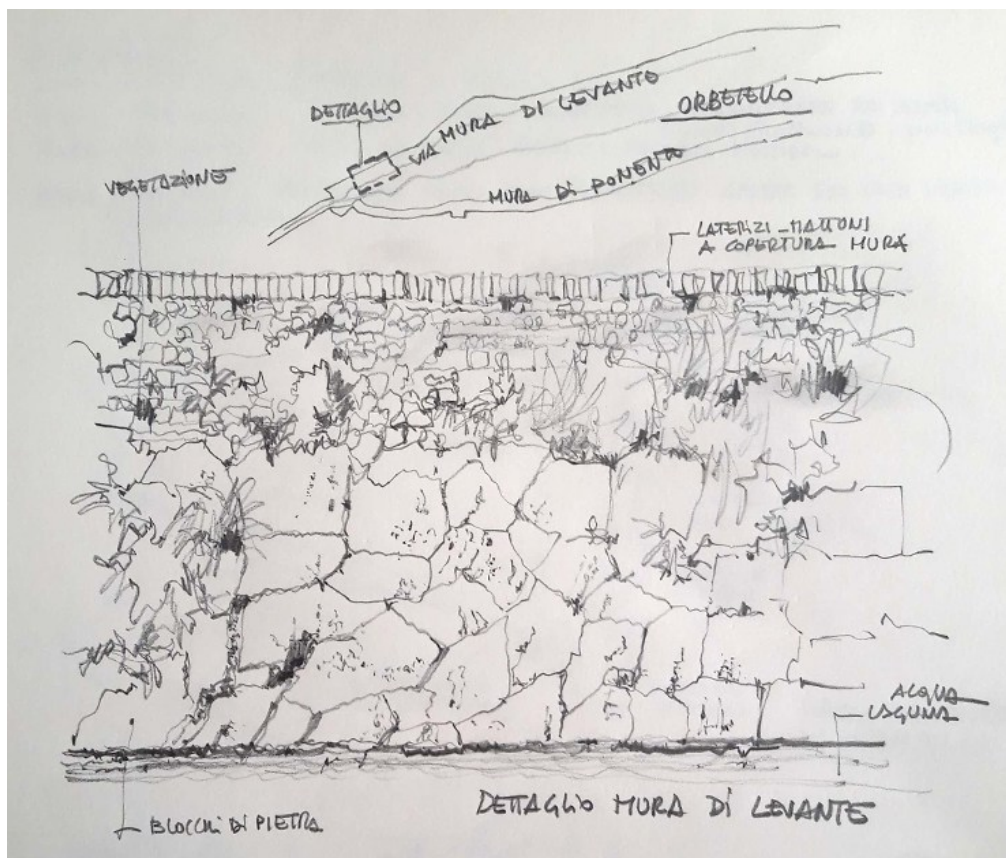 DETTAGLIO
VIA MURA DI LEVANTE
ORBETELLO
MURA DI PONENTE
VEGETAZIONE
LATERIZI-MATTONI
A COPERTURA MURA
ACQUA
LAGUNA
BLOCCHI DI PIETRA
DETTAGLIO MURA DI LEVANTE